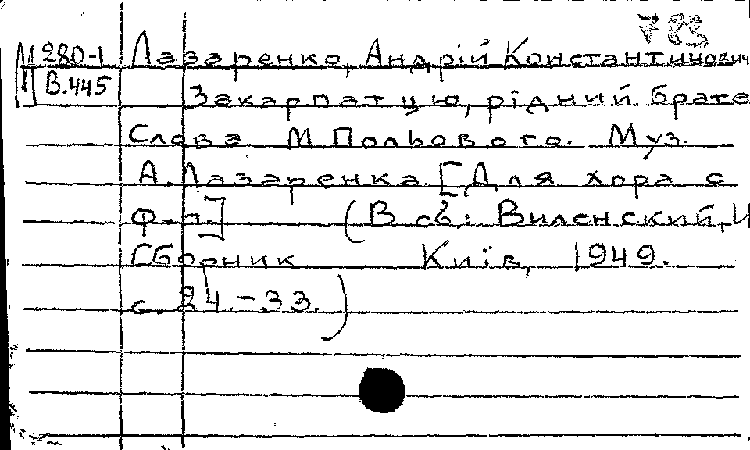 783
М 280-1 Лазаренко, Андрій Константинович
П В.445 Закарпатцю, рідний брате
Слова М Польового. Муз.
А. Лазаренка. [Для хора с
ф-п.] (В сб: Виленский, И
Сборник Київ, 1949.
с. 24.-33.)